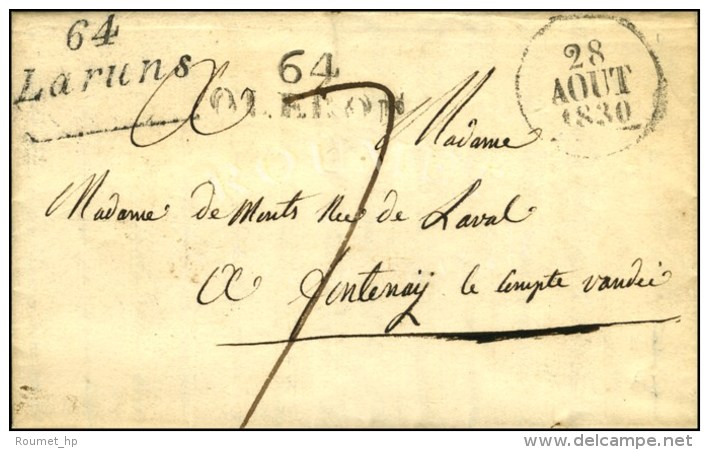 64
Laruns
64
OLERON
28
AOUT
1830
A Madame
7
Madame de Monts Née de Laval
A fontenay le Compte vandée
Roumet_hp
© delcampe.net